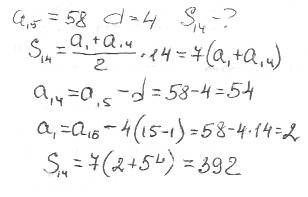 a₁₅ = 58 d = 4 S₁₄ - ?
S₁₄ = (a₁ + a₁₄)/2 · 14 = 7(a₁ + a₁₄)
a₁₄ = a₁₅ - d = 58 - 4 = 54
a₁ = a₁₅ - 4(15 - 1) = 58 - 4 · 14 = 2
S₁₄ = 7(2 + 54) = 392